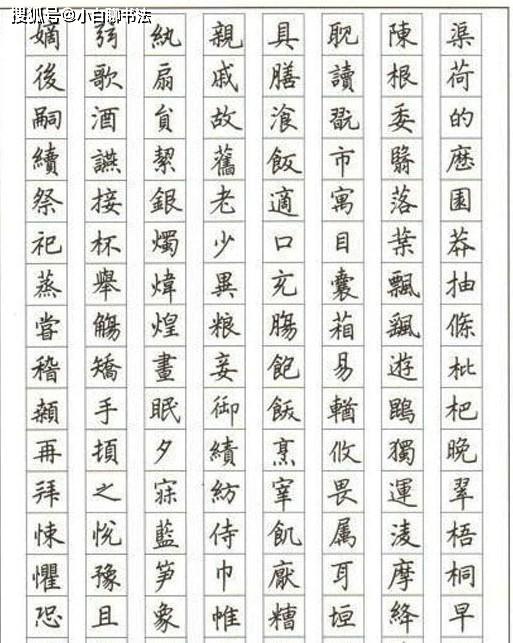 搜狐号@小白聊书法
渠荷的歴園莽抽條枇杷晚翠梧桐早
陳根委翳落葉飄颻遊鵾獨運淩摩絳
耽讀翫市寓目囊箱易輶攸畏属耳垣
具膳飡飯適口充腸飽飫烹宰飢厭糟
親戚故舊老少異粮妾御績紡侍巾帷
紈扇員絜銀燭煒煌晝眠夕寐藍笋象
弦歌酒讌接杯舉觴矯手頓足悅豫且
嫡後嗣續祭祀蒸嘗稽顙再拜悚懼恐